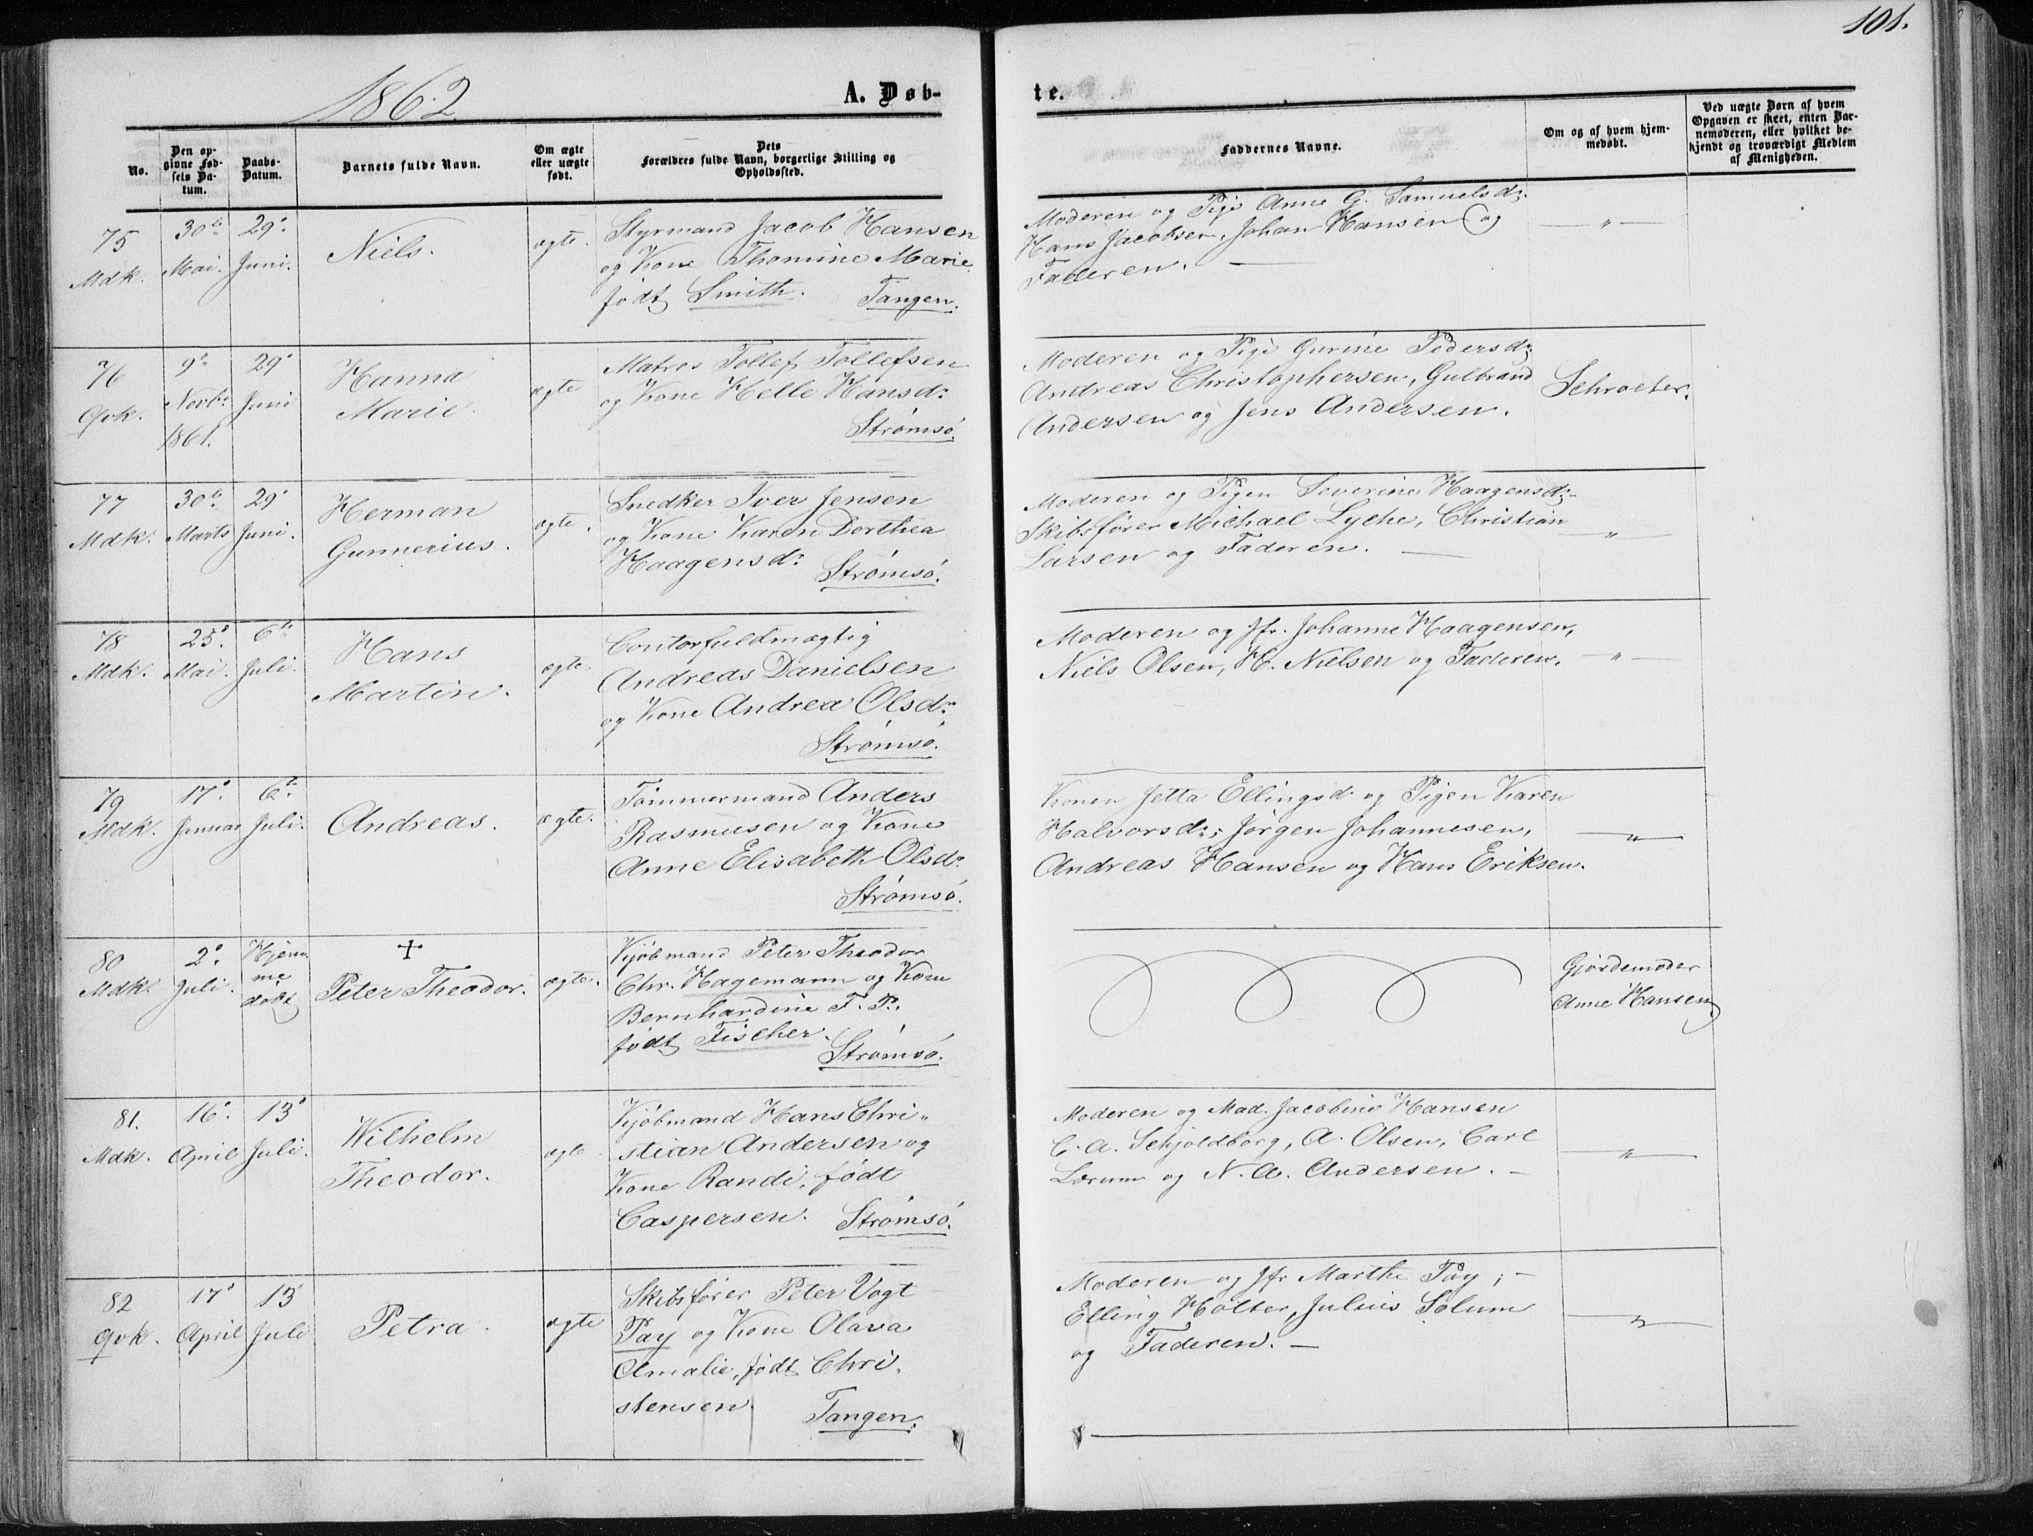 101.
1862
A. Døb-
te.
No.
Den op-
givne Fød-
sels Da-
tum.
Daabs-
Datum.
Barnets fulde Navn.
Om ægte
eller uægte
født.
Dets
Forældres fulde Navn, borgerlige Stilling og
Opholdssted.
Faddernes Navne.
Om og af hvem hjem-
medøbt.
Ved uægte Børn af hvem
Opgaven er skeet, enten Bar-
nemoderen, eller hvilket be-
kjendt og troværdigt Medlem
af Menigheden.
75
Mdk.
30te
Mai.
29de
Juni.
Niels.
ægte.
Styrmand Jacob Hansen
og Kone Thomine Marie
født Smith. Tangen.
Moderen og Pige Anne G. Samuelsdr.
Hans Jacobsen, Johan Hansen og
Faderen. —
— " —
76
Qvk.
9de
Novbr.
1861.
29de
Juni
Hanna
Marie.
ægte
Matros Tollef Tollefsen
og Kone Helle Hansdr.
Strømsø.
Moderen og Pige Gurine Pedersdr.
Andreas Christophersen, Gulbrand
Andersen og Jens Andersen.
Schroeter.
77
Mdk.
30te
Marts
29de
Juni.
Herman
Gunnerius.
ægte.
Snedker Iver Jensen
og Kone Karen Dorthea
Haagensdr. Strømsø.
Moderen og Pigen Severine Haagensdr. —
Skibsfører Michael Lyche, Christian
Larsen og Faderen. —
— " —
78
Mdk.
25de
Mai.
6te
Juli.
Hans
Martin.
ægte.
Contorfuldmægtig
Andreas Danielsen
og Kone Andrea Olsdr.
Strømsø.
Moderen og Jfr. Johanne Haagensen,
Niels Olsen, H. Nielsen og Faderen.
— " —
79
Mdk.
17de
Januar
6te
Juli.
Andreas.
ægte.
Tømmermand Anders
Rasmusen og Kone
Anne Elisabeth Olsdr.
Strømsø.
Konen Jetta Ellingsdr. og Pigen Karen
Halvorsdr., Jørgen Johannesen,
Andreas Hansen og Hans Eriksen.
— " —
80
Mdk.
2de
Juli.
Hjem-
me
døbt
+
Peter Theodor.
ægte.
Kjøbmand Peter Theodor
Chr. Hagemann og Kone
Bernhardine F. P.
født Fischer.
Strømsø.
Gjordemoder
Anne Hansen
81.
Mdk.
16de
April
13de
Juli.
Wilhelm
Theodor.
ægte.
Kjøbmand Hans Chri-
stian Andersen og
Kone Randi, født
Caspersen. Strømsø.
Moderen og Mad. Jacobine Hansen
C. A. Schjoldborg, A. Olsen, Carl
Lorum og N. A. Andersen. —
— " —
82
Qvk.
17de
April
13de
Juli
Petra.
ægte
Skibsfører Peter Vogt
Pay og Kone Olava
Amalie, født Chri-
stensen. Tangen.
Moderen og Jfr Marthe Pay, —
Elling Holter, Julius Solum
og Faderen. —
— " —